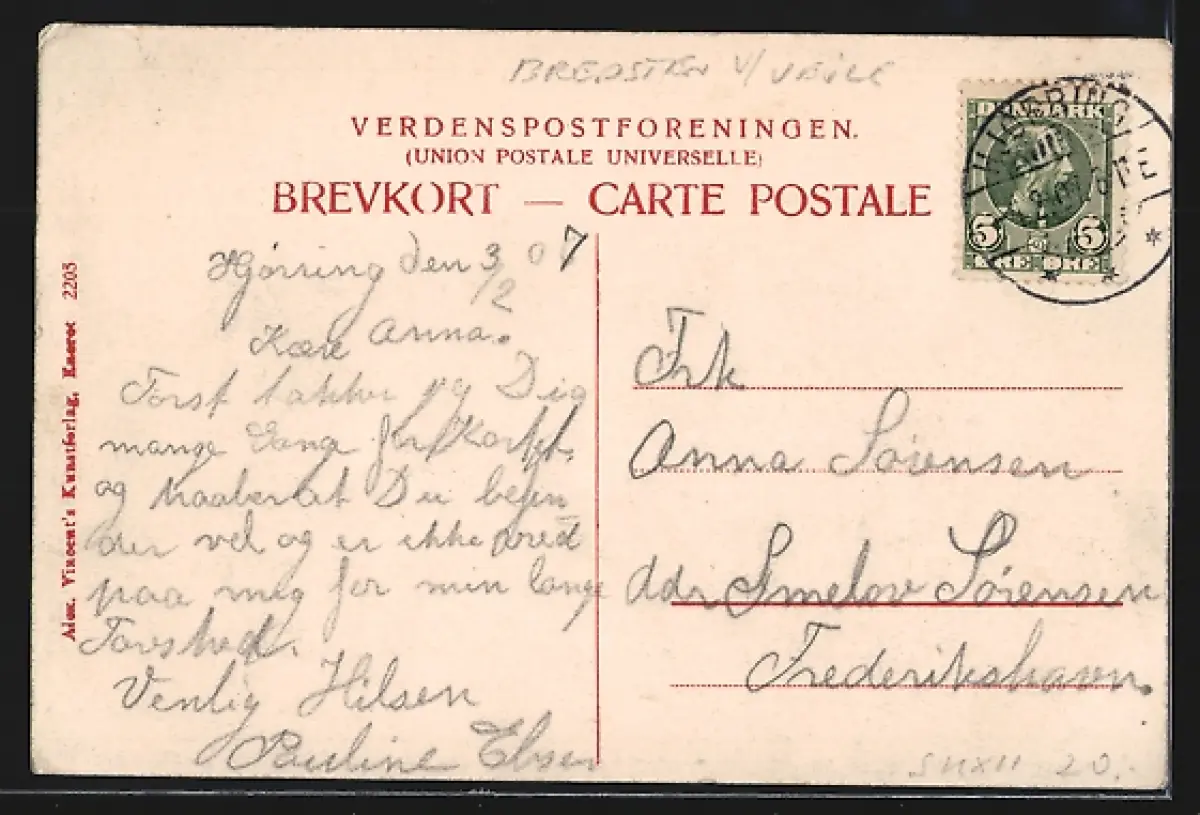 BREDSTEN V/ VEJLE
VERDENSPOSTFORENINGEN.
(UNION POSTALE UNIVERSELLE)
BREVKORT — CARTE POSTALE
DANMARK
5 5
ØRE ØRE
Hjørring den 3/2 07
Kære Anna.
Først takker jeg Dig
mange Gange for Kortet,
og haaber at Du befin
der vel og er ikke vred
paa mig for min lange
Tavshed.
Venlig Hilsen
Pauline
Frk
Anna Sørensen
Sørensen
Frederikshavn.
Alex. Vincent's Kunstforlag, Eneret 2203
20.-